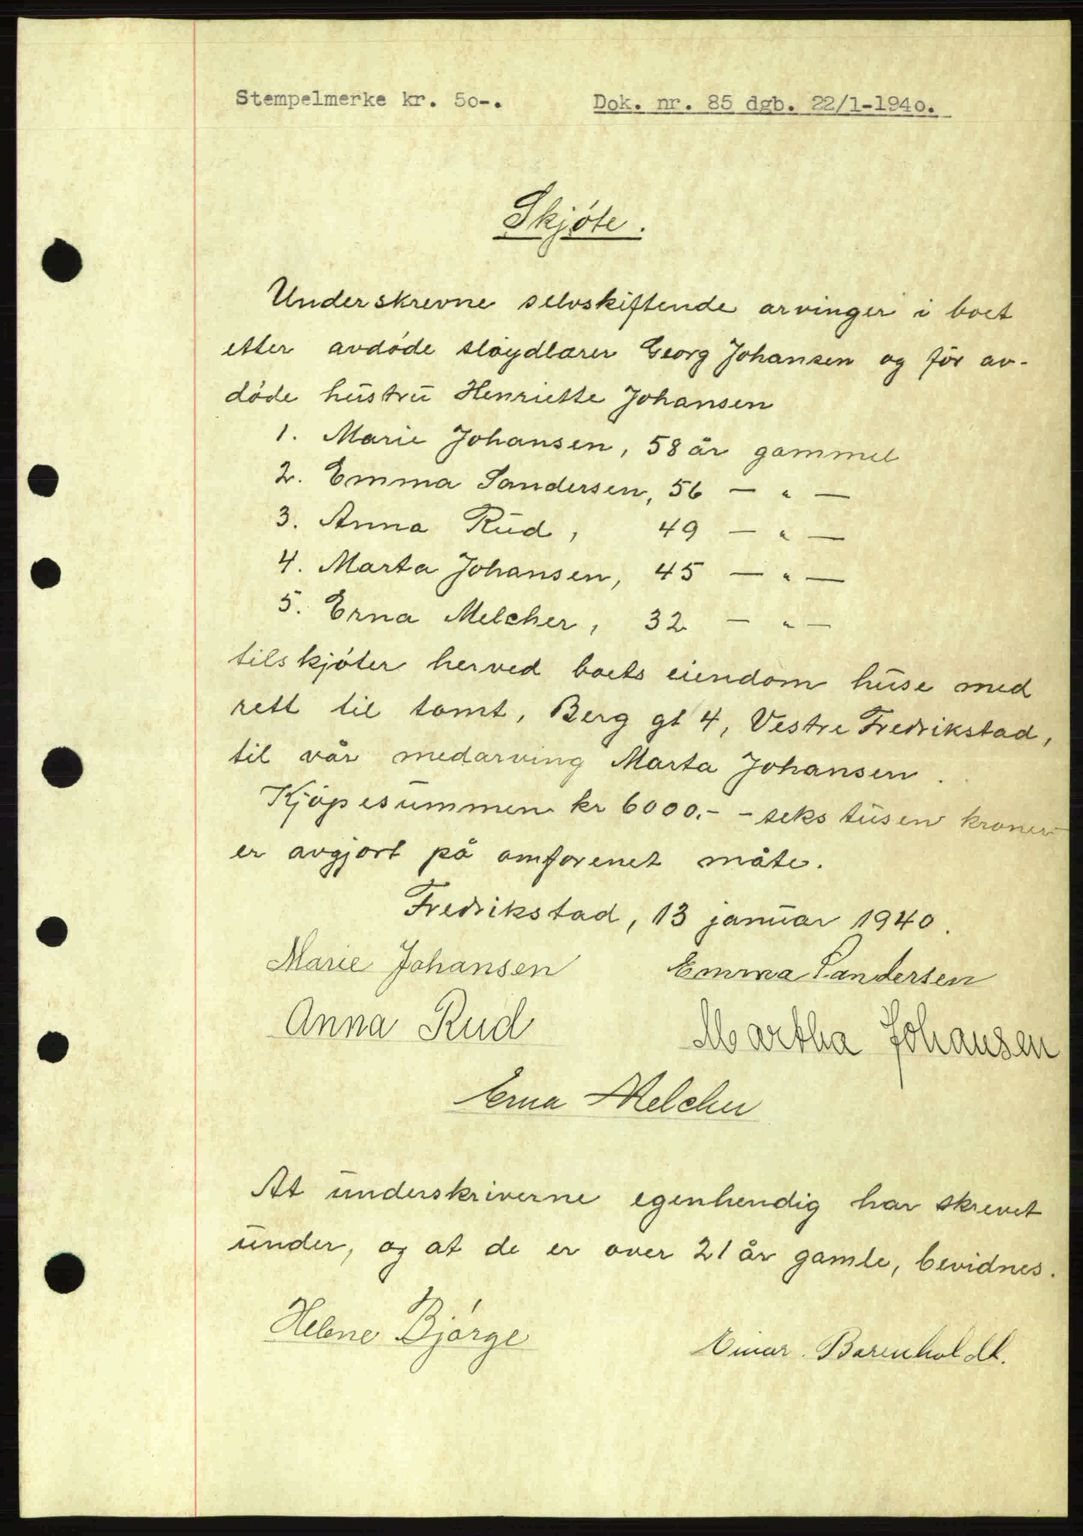 Stempelmerke kr. 50-. Dok. nr. 85 dgb. 22/1-1940.
Skjóte.
Underskrevne selvskiftende arvinger i boet
etter avdóde slóydlærer Georg Johansen og fór av-
dóde hustru Henriette Johansen
1. Marie Johansen, 58 år gammel
2. Emma Sandersen, 56 — " —
3. Anna Rud, 49 — " —
4. Marta Johansen, 45 — " —
5. Erna Melcher, 32 — " —
tilskjóter herved boets eiendom huse med
rett til tomt, Berg gt 4, Vestre Fredrikstad,
til vår medarving Marta Johansen.
Kjópesummen kr 6000.- - seks tusen kroner -
er avgjort på omforenet måte.
Fredrikstad, 13 januar 1940.
Marie Johansen Emma Sandersen
Anna Rud Martha Johansen
Erna Melcher
At underskriverne egenhendig har skrevet
under, og at de er over 21 år gamle, bevidnes.
Helene Bjórge Einar Barenholdt.